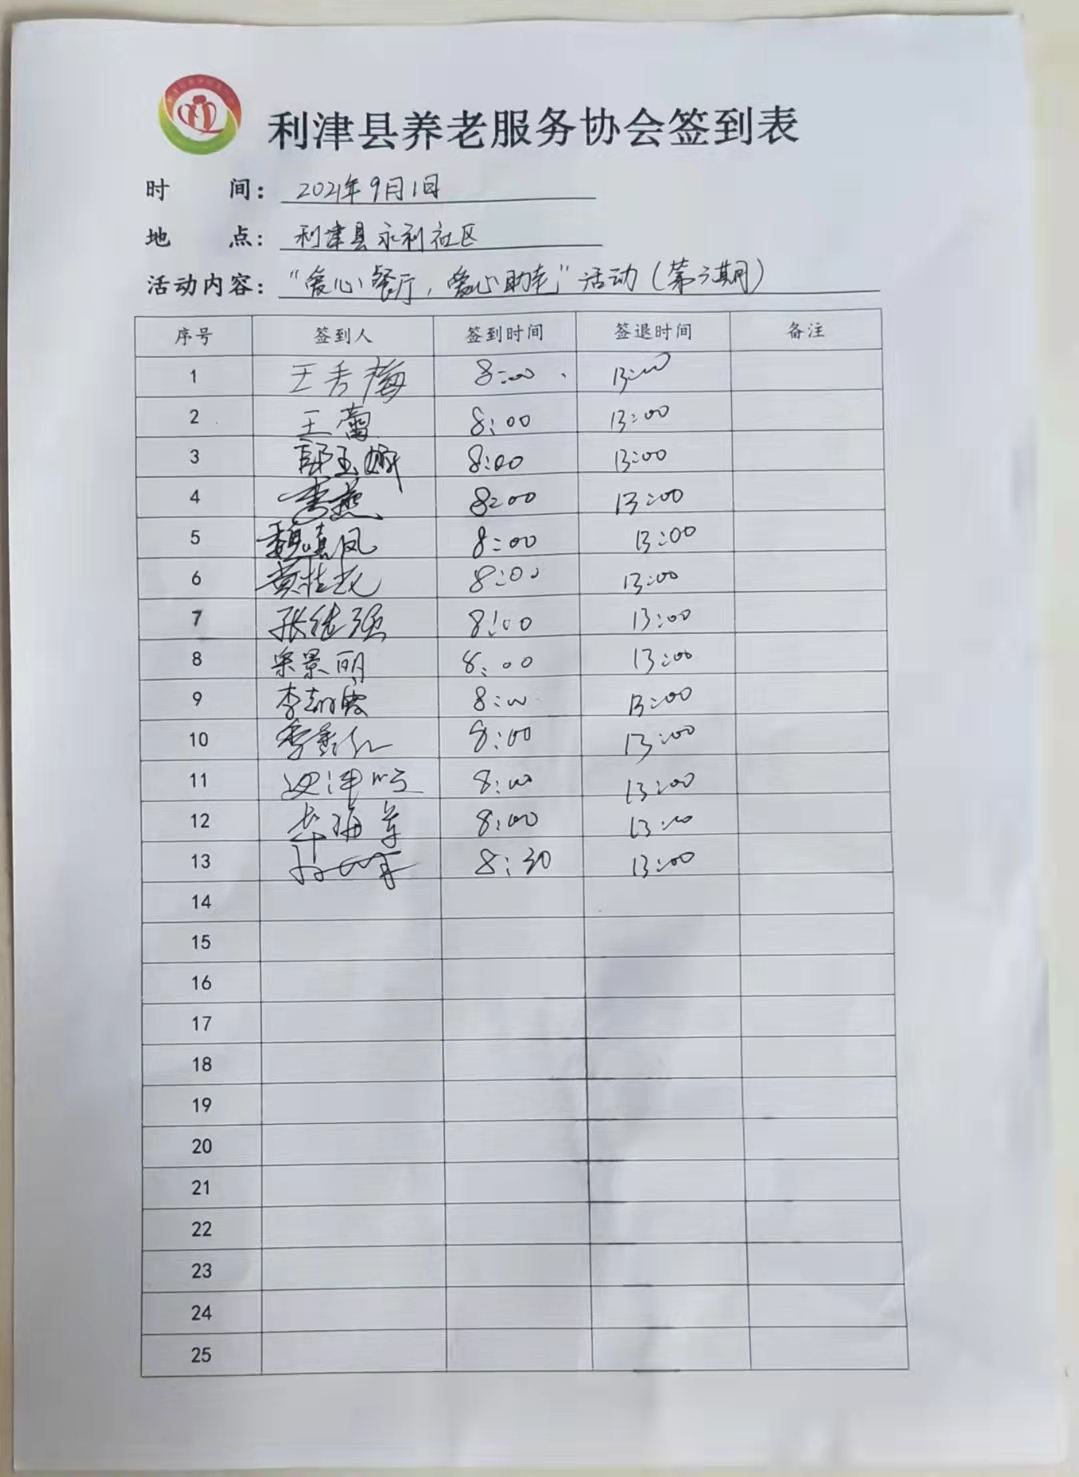 利津县养老服务协会签到表
时 间: 2021年9月1日
地 点: 利津县永利社区
活动内容: "爱心餐厅,爱心助老"活动(第 期)
序号 签到人 签到时间 签退时间 备注
1 王秀梅 8:00 13:00
2 王蕾 8:00 13:00
3 郭玉 8:00 13:00
4 李燕 8:00 13:00
5 魏 凤 8:00 13:00
6 黄桂 8:00 13:00
7 张 强 8:00 13:00
8 宋景丽 8:00 13:00
9 李 8:00 13:00
10 8:00 13:00
11 8:00 13:00
12 海 8:00 13:00
13 8:30 13:00
14
15
16
17
18
19
20
21
22
23
24
25